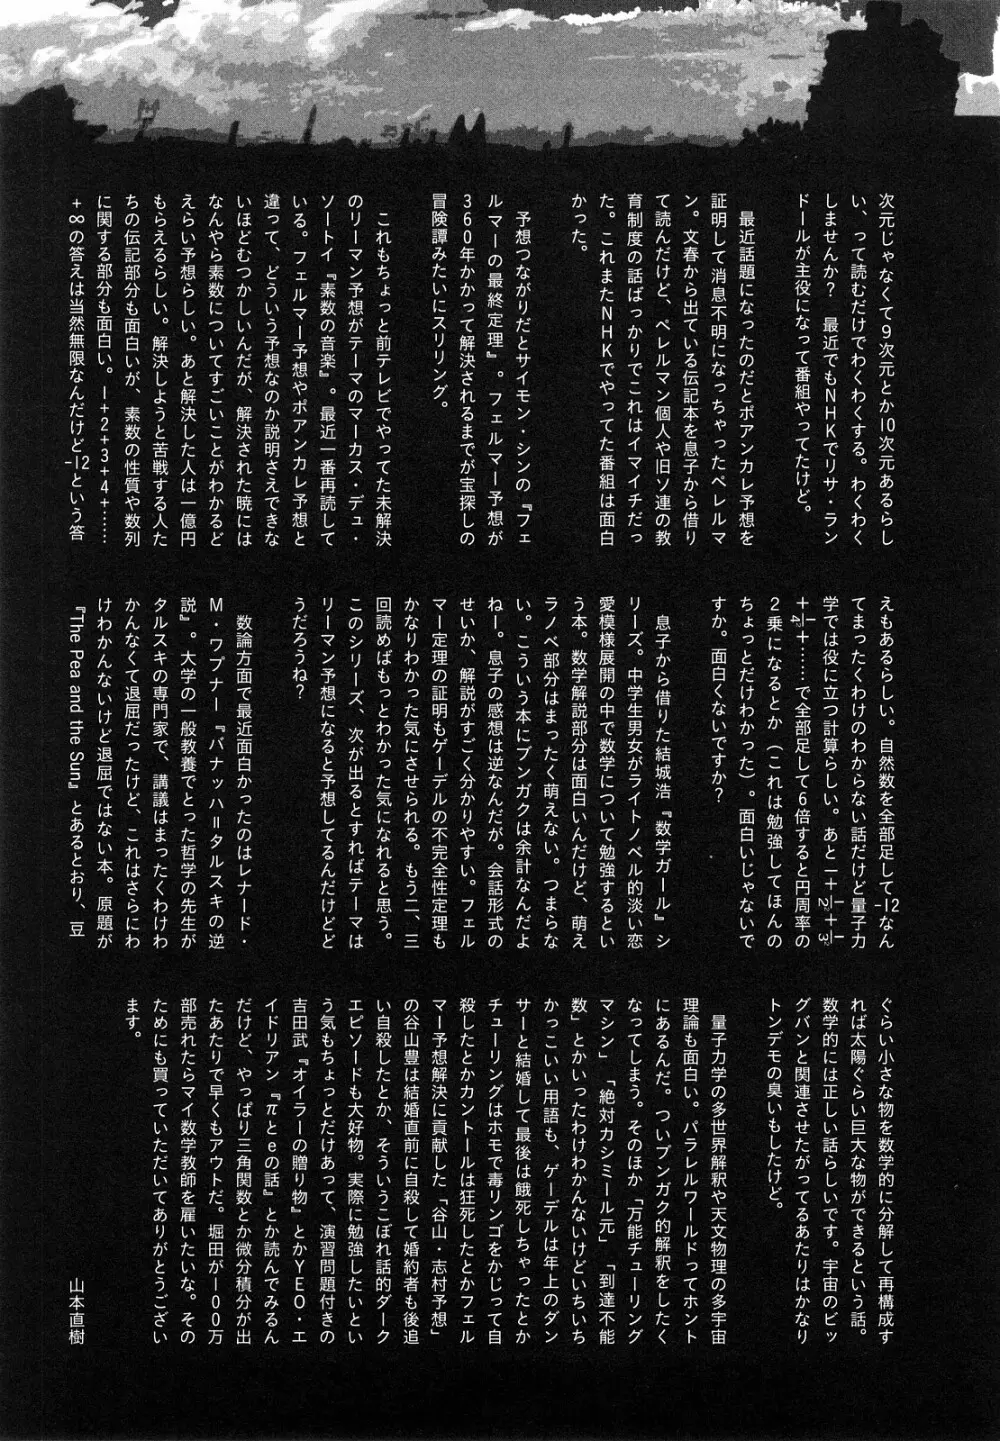 次元じゃなくて9次元とか10次元あるらし
い、って読むだけでわくわくする。わくわく
しませんか? 最近でもNHKでリサ・ラン
ドールが主役になって番組やってたけど。
最近話題になったのだとポアンカレ予想を
証明して消息不明になっちゃったペレルマ
ン。文春から出ている伝記本を息子から借り
て読んだけど、ペレルマン個人や旧ソ連の教
育制度の話ばっかりでこれはイマイチだっ
た。これまたNHKでやってた番組は面白
かった。
予想つながりだとサイモン・シンの『フェ
ルマーの最終定理』。フェルマー予想が
360年かかって解決されるまでが宝探しの
冒険譚みたいにスリリング。
これもちょっと前テレビでやってた未解決
のリーマン予想がテーマのマーカス・デュ・
ソートイ『素数の音楽』。最近一番再読して
いる。フェルマー予想やポアンカレ予想と
違って、どういう予想なのか説明さえできな
いほどむつかしいんだが、解決された暁には
なんやら素数についてすごいことがわかるど
えらい予想らしい。あと解決した人は一億円
もらえるらしい。解決しようと苦戦する人た
ちの伝記部分も面白いが、素数の性質や数列
に関する部分も面白い。1+2+3+4+……
+∞の答えは当然無限なんだけど-12という答
えもあるらしい。自然数を全部足して-12なん
てまったくわけのわからない話だけど量子力
学では役に立つ計算らしい。あと1+1/2²+1/3²
+1/4²+……で全部足して6倍すると円周率の
2乗になるとか(これは勉強してほんの
ちょっとだけわかった)。面白いじゃないで
すか。面白くないですか?
息子から借りた結城浩『数学ガール』シ
リーズ。中学生男女がライトノベル的淡い恋
愛模様展開の中で数学について勉強するとい
う本。数学解説部分は面白いんだけど、萌え
ラノベ部分はまったく萌えない。つまらな
い。こういう本にブンガクは余計なんだよ
ねー。息子の感想は逆なんだが。会話形式の
せいか、解説がすごく分かりやすい。フェル
マー定理の証明もゲーデルの不完全性定理も
かなりわかった気にさせられる。もう二、三
回読めばもっとわかった気になれると思う。
このシリーズ、次が出るとすればテーマは
リーマン予想になると予想してるんだけどど
うだろうね?
数論方面で最近面白かったのはレナード・
M・ワプナー『バナッハ=タルスキの逆
説』。大学の一般教養でとった哲学の先生が
タルスキの専門家で、講義はまったくわけわ
かんなくて退屈だったけど、これはさらにわ
けわかんないけど退屈ではない本。原題が
『The Pea and the Sun』とあるとおり、豆
ぐらい小さな物を数学的に分解して再構成す
れば太陽ぐらい巨大な物ができるという話。
数学的には正しい話らしいです。宇宙のビッ
グバンと関連させたがってるあたりはかなり
トンデモの臭いもしたけど。
量子力学の多世界解釈や天文物理の多宇宙
理論も面白い。パラレルワールドってホント
にあるんだ。ついブンガク的解釈をしたく
なってしまう。そのほか「万能チューリング
マシン」「絶対カシミール元」「到達不能
数」とかいったわけわかんないけどいちいち
かっこいい用語も、ゲーデルは年上のダン
サーと結婚して最後は餓死しちゃったとか
チューリングはホモで毒リンゴをかじって自
殺したとかカントールは狂死したとかフェル
マー予想解決に貢献した「谷山・志村予想」
の谷山豊は結婚直前に自殺して婚約者も後追
い自殺したとか、そういうこぼれ話的ダーク
エピソードも大好物。実際に勉強したいとい
う気もちょっとだけあって、演習問題付きの
吉田武『オイラーの贈り物』とかYEO・エ
イドリアン『πとeの話』とか読んでみるん
だけど、やっぱり三角関数とか微分積分が出
たあたりで早くもアウトだ。堀田が100万
部売れたらマイ数学教師を雇いたいな。その
ためにも買っていただいてありがとうござい
ます。
山本直樹